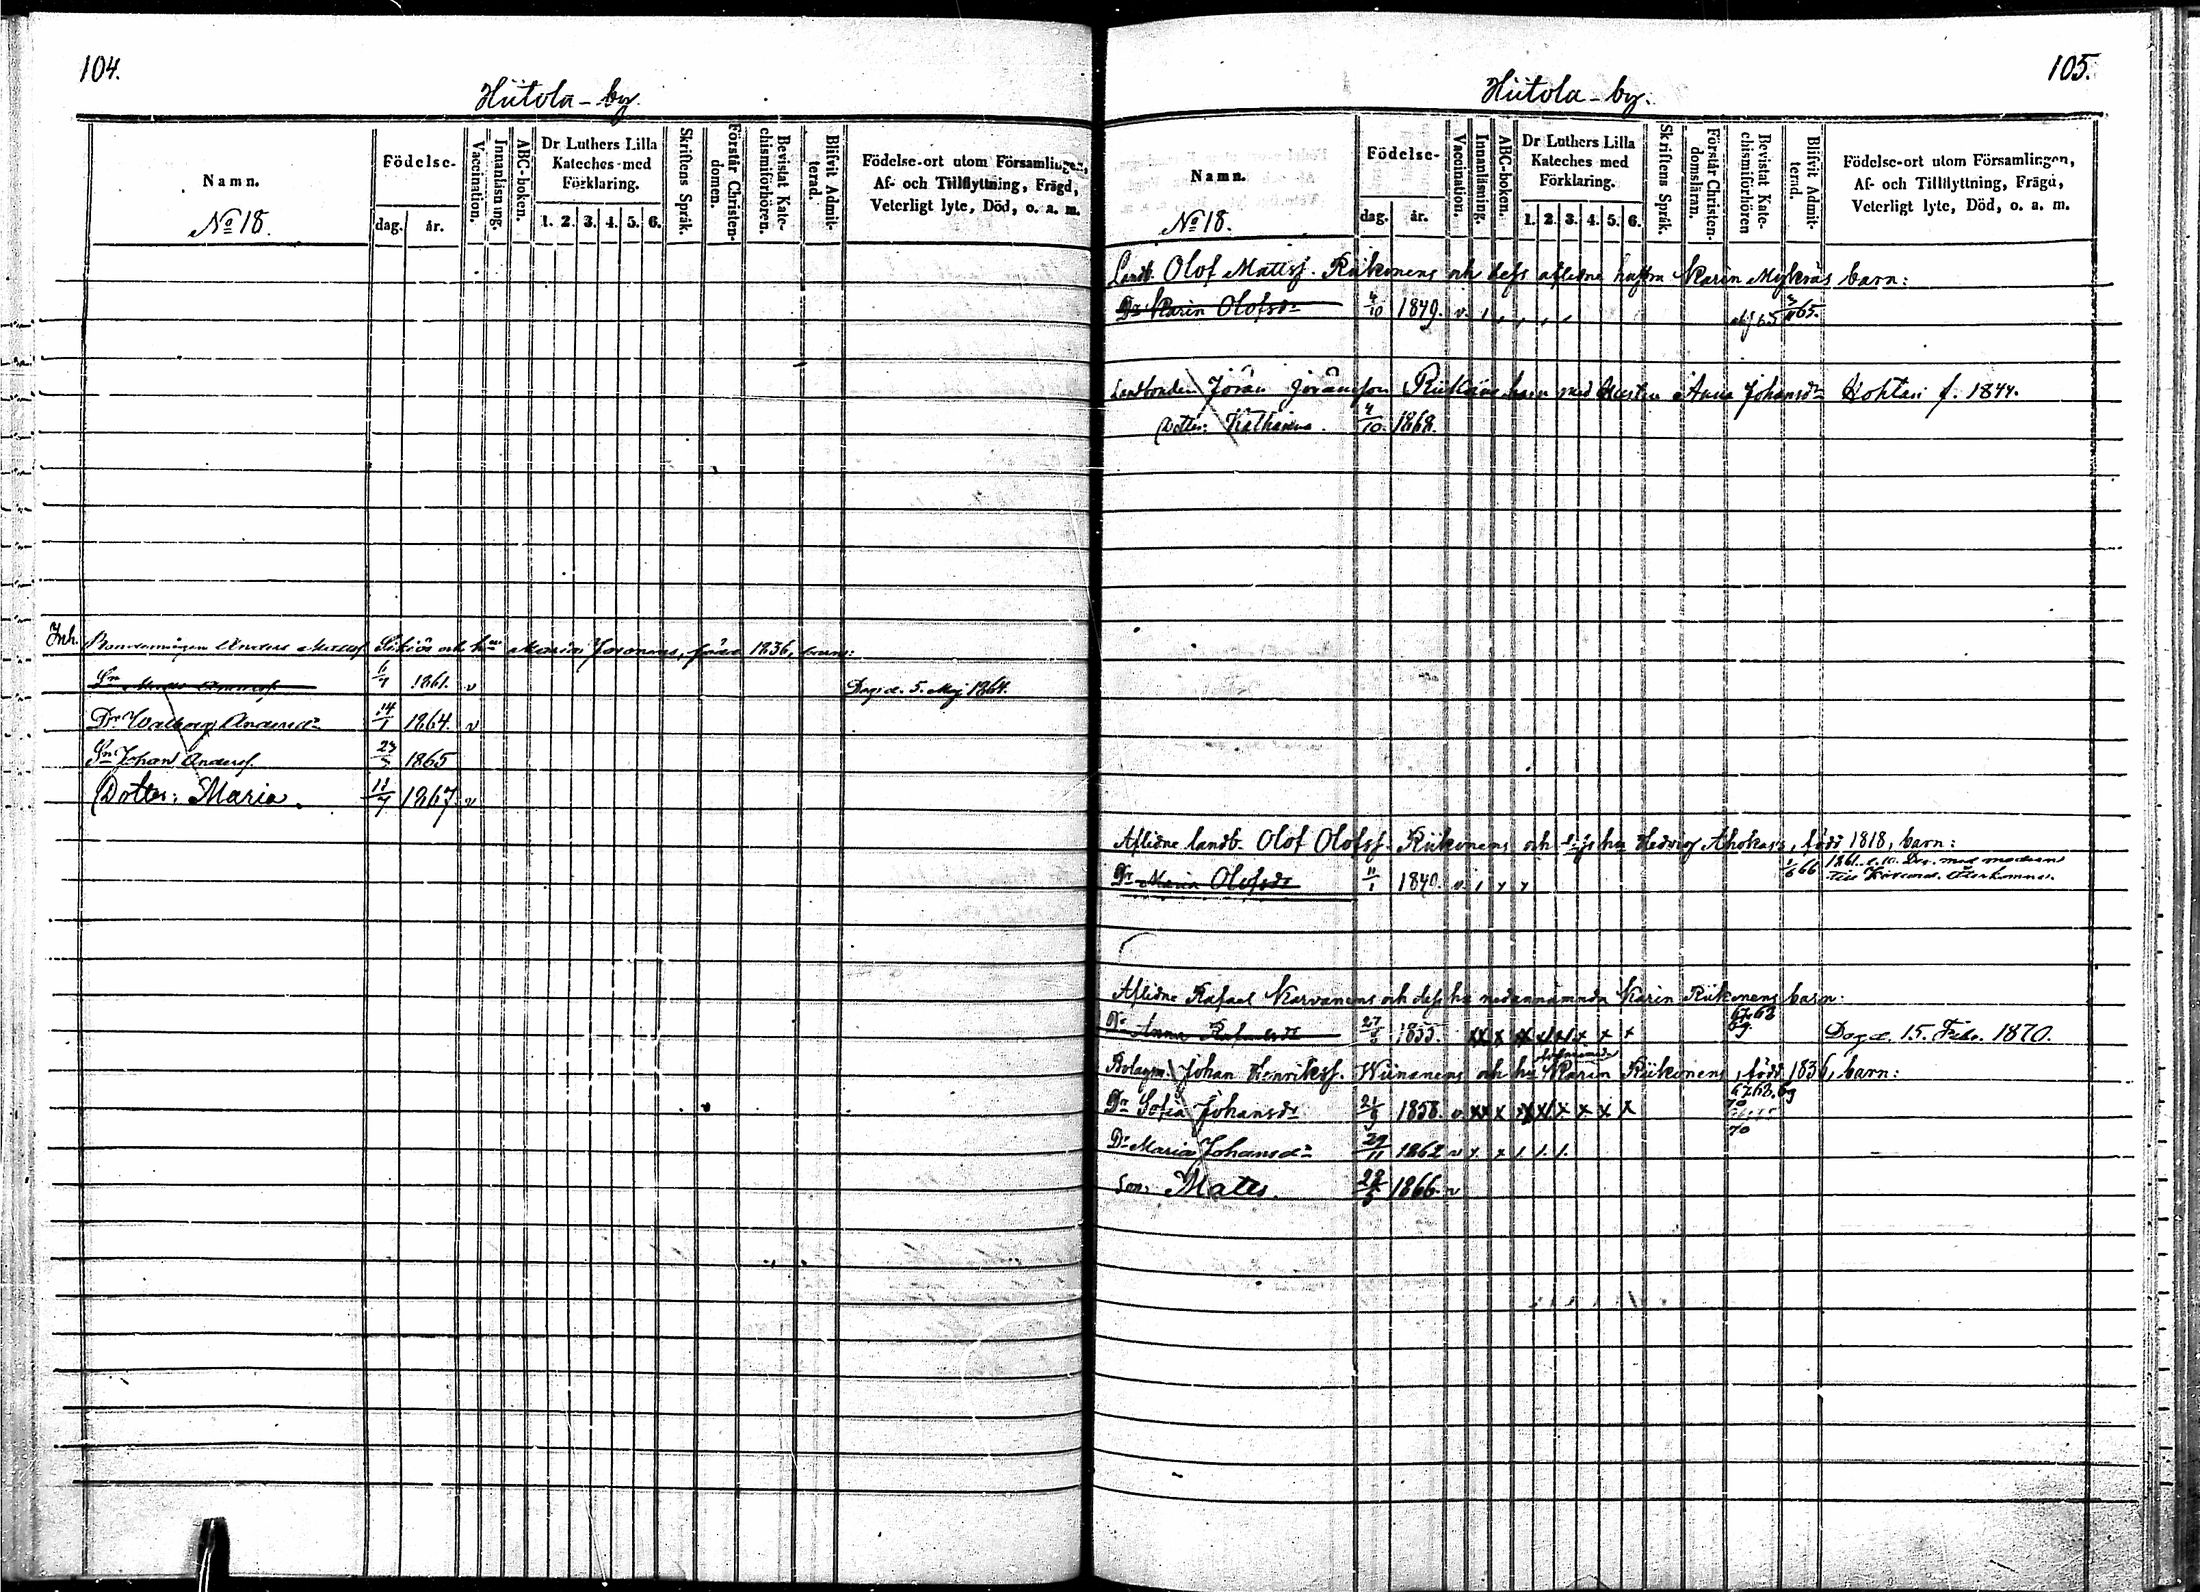 104.
Hiitola-by.
Namn.
No 18.
Födelse-
dag. år.
Vaccination.
Innanläsning.
ABC-boken.
Dr Luthers Lilla
Kateches med
Förklaring.
1. 2. 3. 4. 5. 6.
Skriftens Språk.
Förstår Christen-
domen.
Bevistat Kate-
chismiförhören.
Blifvit Admit-
terad.
Födelse-ort utom Församlingen,
Af- och Tillflyttning, Frägd,
Veterligt lyte, Död, o. a. m.
Inh.
Anders och Maria född 1836, barn:
Sn 6/7 1861. v Dog d. 5. Maj 1864.
Dr Walborg Andersdr 14/1 1864. v
Sn Johan Anderss. 23/5 1865
Dotter: Maria. 11/7 1867. v
105.
Hiitola-by.
Namn.
No 18.
Födelse-
dag. år.
Vaccination.
Innanläsning.
ABC-boken.
Dr Luthers Lilla
Kateches med
Förklaring.
1. 2. 3. 4. 5. 6.
Skriftens Språk.
Förstår Christen-
domsläran.
Bevistat Kate-
chismiförhören
Blifvit Admit-
terad.
Födelse-ort utom Församlingen,
Af- och Tillflyttning, Frägd,
Veterligt lyte, Död, o. a. m.
Landb. Olof Mattss. Riikonens och dess aflidne hustru Karin Mykräs barn:
Dr Karin Olofsdr 4/10 1849. v 65.
Landbonden Jöran Jöransson Riikonens barn med hustru Anna Johansdr Kohtari f. 1844.
Dotter: Katharina. 4/10 1868.
Aflidne landb. Olof Olofss. Riikonens och hu Hedvig Ahokas's, född 1818, barn:
Dr Maria Olofsdr 11/1 1840. v 1/6 66 1861. d. 10. Dec. med modern
till Återkommen.
Aflidne Rafael Karvanens och dess hu nedannämnda Karin Riikonens barn:
Dr Anna Rafaelsdr 27/8 1855. x x x x x 67.68 69. Dog d. 15. Febr. 1870.
Bolagsm. Johan Henrikss. Wiinanens och hu Karin Riikonens, född 1836, barn:
Dr Sofia Johansdr 21/9 1858. v x x x x x x 67.68.69 70
Dr Maria Johansdr 29/11 1862 v x. x 1 1. 1. 70
Son: Matts. 28/8 1866. v